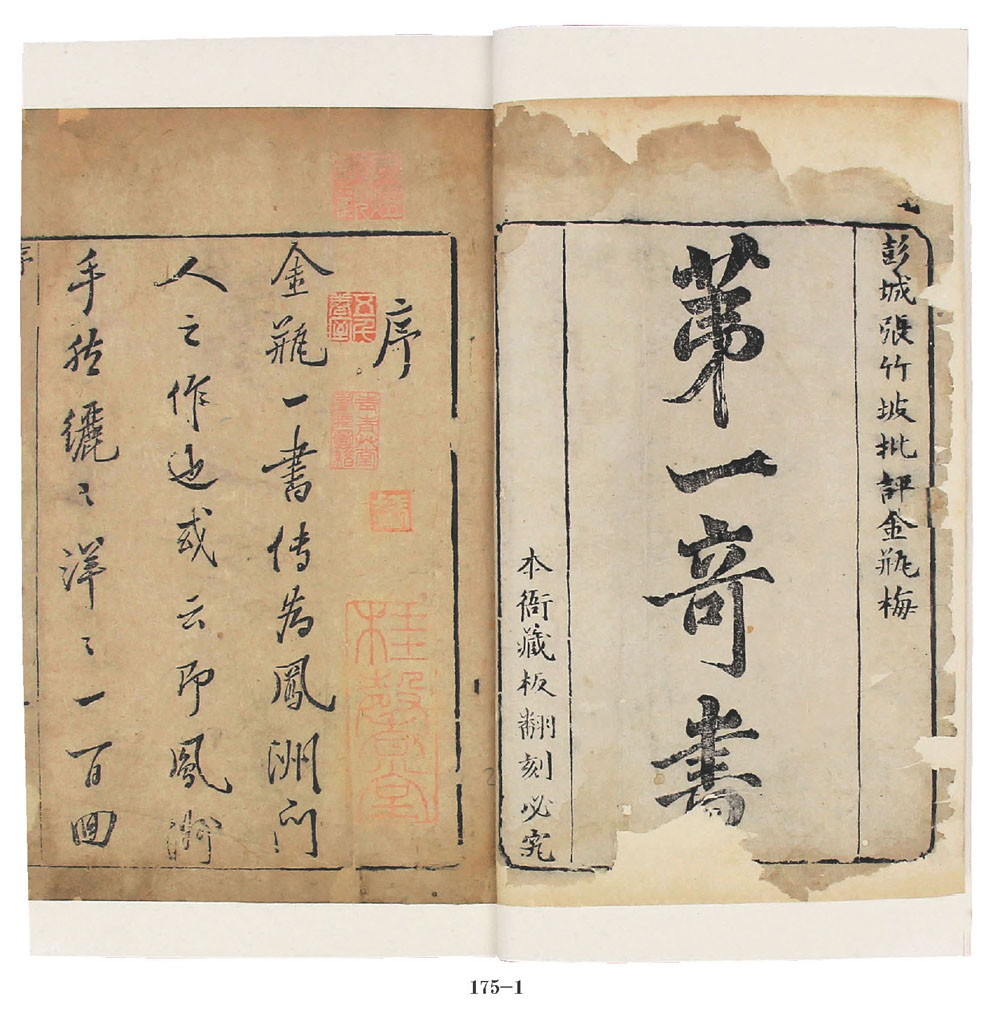 彭城張竹坡批評金瓶梅
第一奇書
本衙藏板翻刻必究
序
金瓶一書傳為鳳洲门
人之作也或云即鳳洲
手然纚〻洋〻一百回
序
桂馨堂
175-1